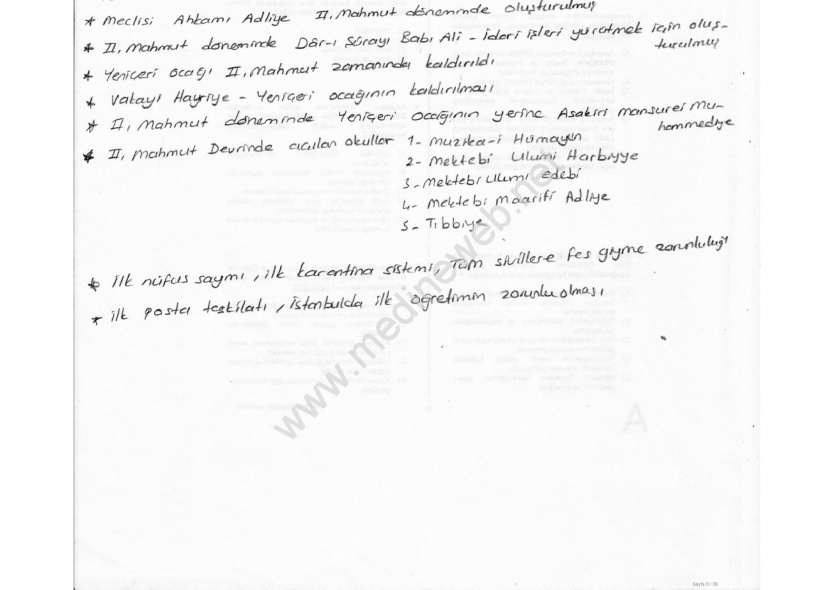 * Meclisi Ahkamı Adliye II. Mahmut döneminde oluşturulmuş
* II. Mahmut döneminde Dâr-ı Şûrayı Babı Ali - İdari işleri yürütmek için oluş-
turulmuş
* Yeniçeri ocağı II. Mahmut zamanında kaldırıldı
* Vakayı Hayriye - Yeniçeri ocağının kaldırılması
* II. Mahmut döneminde Yeniçeri Ocağının yerine Asakiri mansurei Mu-
hammediye
* II. Mahmut Devrinde açılan okullar 1- Muzıka-i Hümayun
2- Mektebi Ulumi Harbiyye
3- Mektebi Ulumi edebi
4- Mektebi Maarifi Adliye
5- Tıbbiye
* İlk nüfus sayımı, ilk karantina sistemi, Tüm sivillere fes giyme zorunluluğu
* İlk posta teşkilatı, İstanbulda ilk öğretimin zorunlu olması
www.medineweb.net
A
Sayfa 5 / 39